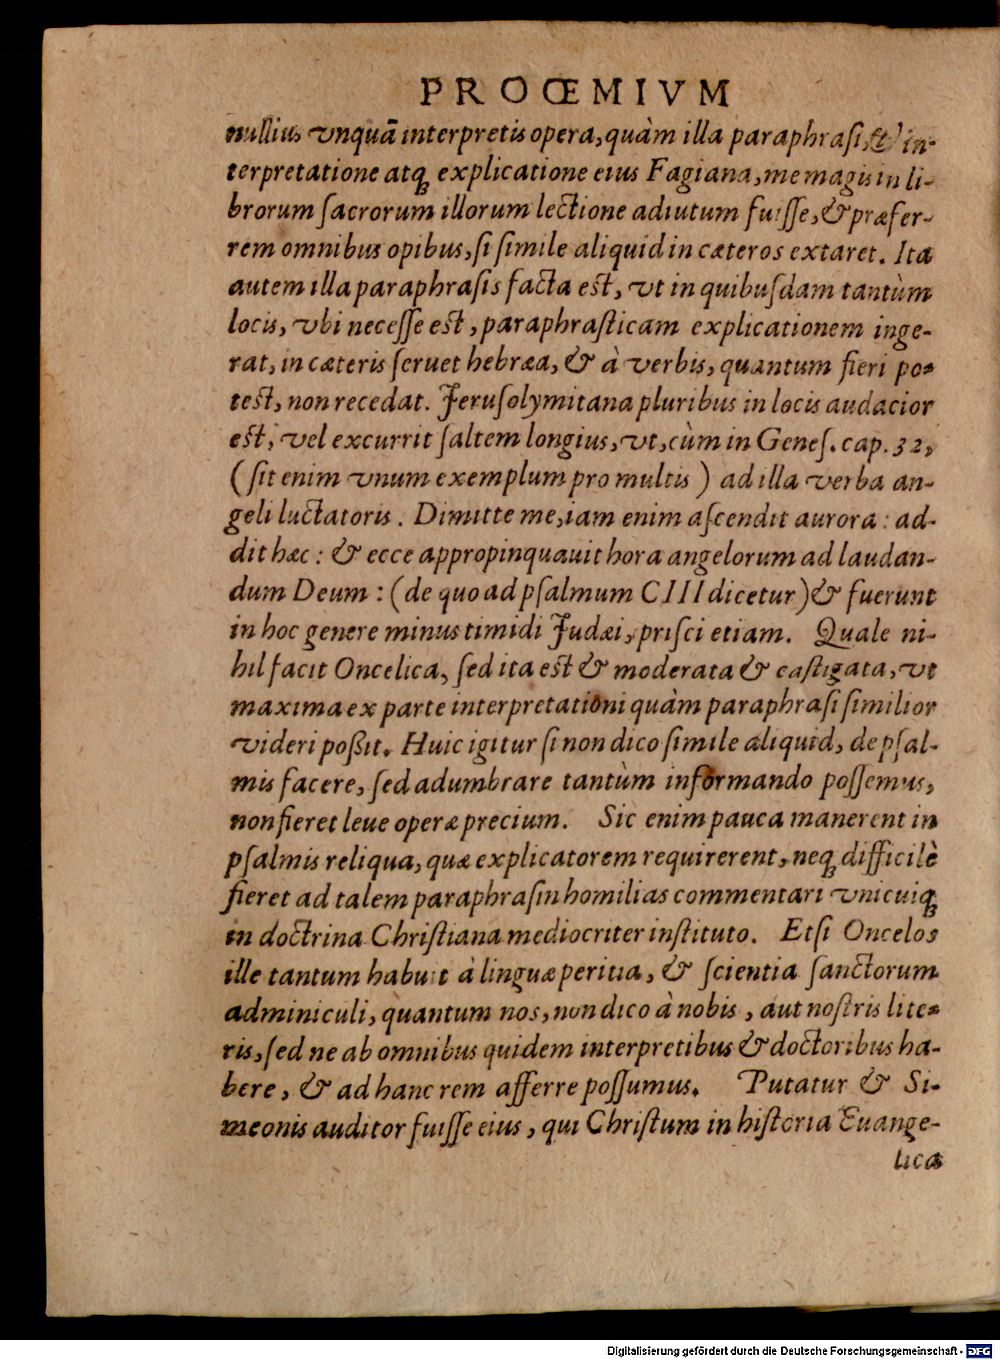 PROŒMIVM
nullius vnquā interpretis opera, quàm illa paraphrasi, & in-
terpretatione atq́ue explicatione eius Fagiana, me magis in li-
brorum sacrorum illorum lectione adiutum fuisse, & præfer-
rem omnibus opibus, si simile aliquid in cæteros extaret. Ita
autem illa paraphrasis facta est, vt in quibusdam tantùm
locis, vbi necesse est, paraphrasticam explicationem inge-
rat, in cæteris seruet hebræa, & à verbis, quantum fieri po-
test, non recedat. Jerusolymitana pluribus in locis audacior
est, vel excurrit saltem longius, vt, cùm in Genes. cap. 32,
(sit enim vnum exemplum pro multis) ad illa verba an-
geli luctatoris. Dimitte me, iam enim ascendit aurora: ad-
dit hæc: & ecce appropinquauit hora angelorum ad laudan-
dum Deum: (de quo ad psalmum CIII dicetur) & fuerunt
in hoc genere minus timidi Judæi, prisci etiam. Quale ni-
hil facit Oncelica, sed ita est & moderata & castigata, vt
maxima ex parte interpretationi quàm paraphrasi similior
videri poßit. Huic igitur si non dico simile aliquid, de psal-
mis facere, sed adumbrare tantùm informando possemus,
non fieret leue operæprecium. Sic enim pauca manerent in
psalmis reliqua, quæ explicatorem requirerent, neq; difficilè
fieret ad talem paraphrasin homilias commentari vnicuiq;
in doctrina Christiana mediocriter instituto. Etsi Oncelos
ille tantum habuit à linguæ peritia, & scientia sanctorum
adminiculi, quantum nos, non dico à nobis, aut nostris lite-
ris, sed ne ab omnibus quidem interpretibus & doctoribus ha-
bere, & ad hanc rem afferre possumus. Putatur & Si-
meonis auditor fuisse eius, qui Christum in historia Euange-
lica
Digitalisierung gefördert durch die Deutsche Forschungsgemeinschaft - DFG